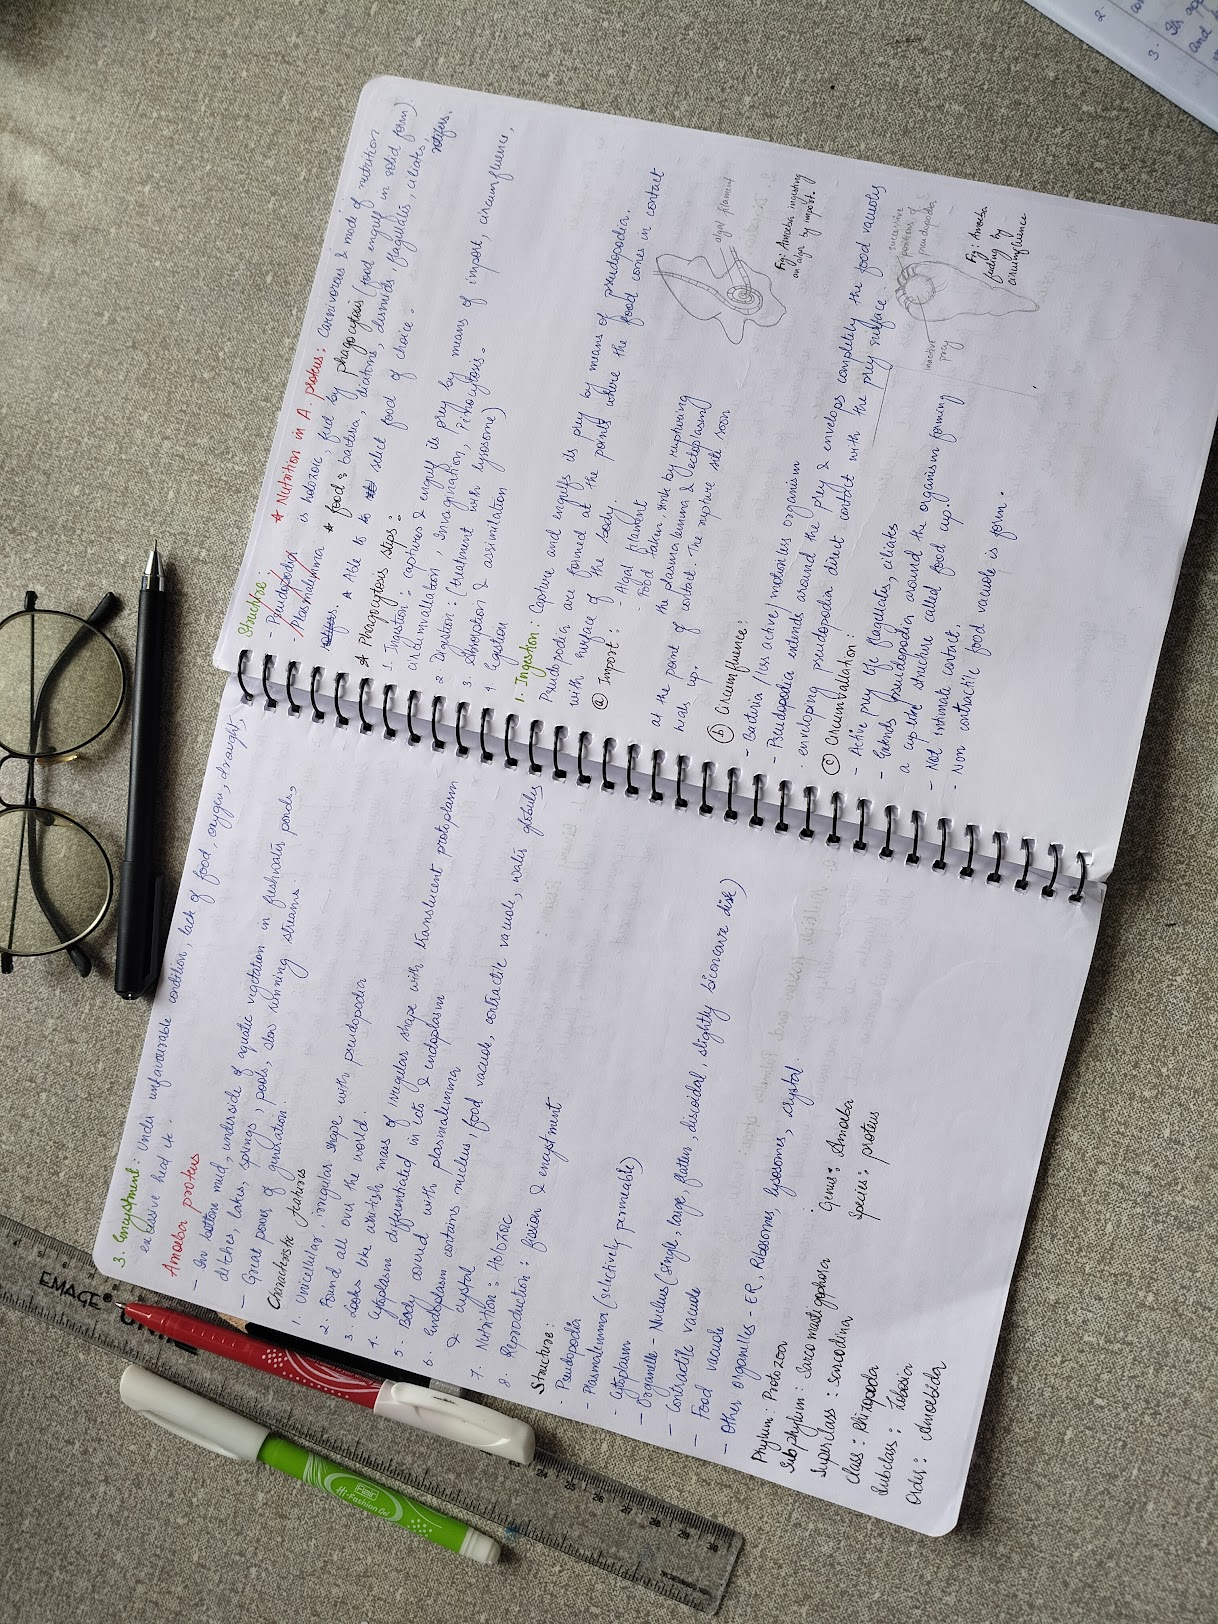 3. Encystment: Under unfavourable condition, lack of food, oxygen, drought,
excessive heat etc.
Amoeba proteus
- In bottom mud, underside of aquatic vegetation in freshwater ponds,
ditches, lakes, springs, pools, slow running streams.
- Great power of generation.
Characteristic features
1. Unicellular, irregular shape with pseudopodia
2. Found all over the world.
3. Looks like whitish mass of irregular shape with translucent protoplasm
4. Cytoplasm differentiated in ecto & endoplasm
5. Body covered with plasmalemma
6. Endoplasm contains nucleus, food vacuole, contractile vacuole, water globules
& crystal
7. Nutrition: Holozoic
8. Reproduction: fission & encystment
Structure:
- Pseudopodia
- Plasmalemma (selectively permeable)
- Cytoplasm
- Organelle - Nucleus (single, large, flatten, discoidal, slightly biconcave disk)
- Contractile vacuole
- Food vacuole
- Other organelles - ER, Ribosomes, lysosomes, crystal.
Phylum: Protozoa
Subphylum: Sarcomastigophora
Superclass: Sarcodina
Class: Rhizopoda
Subclass: Lobosia
Order: Amoebida
Genus: Amoeba
Species: proteus
Structure:
- Pseudopodia
- Plasmalemma
* Nutrition in A. proteus: Carnivorous & mode of nutrition
is holozoic, feed by phagocytosis (food engulf in solid form)
* food: bacteria, diatoms, desmids, flagellates, ciliates,
rotifers.
* Able to select food of choice.
* Phagocytosis steps:
1. Ingestion: captures & engulf its prey by means of import, circumfluence,
circumvallation, Invagination, Pinocytosis.
2 Digestion: (treatment with lysosome)
3. Absorption & assimilation
4. Egestion
1. Ingestion: Capture and engulfs its prey by means of pseudopodia.
Pseudopodia are formed at the points where the food comes in contact
with surface of the body.
(a) Import:
- Algal filament
- Food taken inside by rupturing
at the point of the plasmalemma & ectoplasm
of contact. The rupture site soon
heals up.
algal filament
Fig: Amoeba ingesting
an alga by import.
(b) Circumfluence:
- Bacteria / less active / motionless organism
- Pseudopodia extends around the prey & envelops completely the food vacuole
enveloping pseudopodia direct contact with the prey surface
(c) Circumvallation:
- Active prey like flagellates, ciliates
- Extends pseudopodia around the organism forming
a cup like structure called food cup.
- Not intimate contact.
- Non contractile food vacuole is form.
successive
positions of
pseudopodia
inactive
prey
Fig: Amoeba
feeding by
circumfluence
EMAGE®
Flair
Hi-Fashion Gel
2.
3.
and